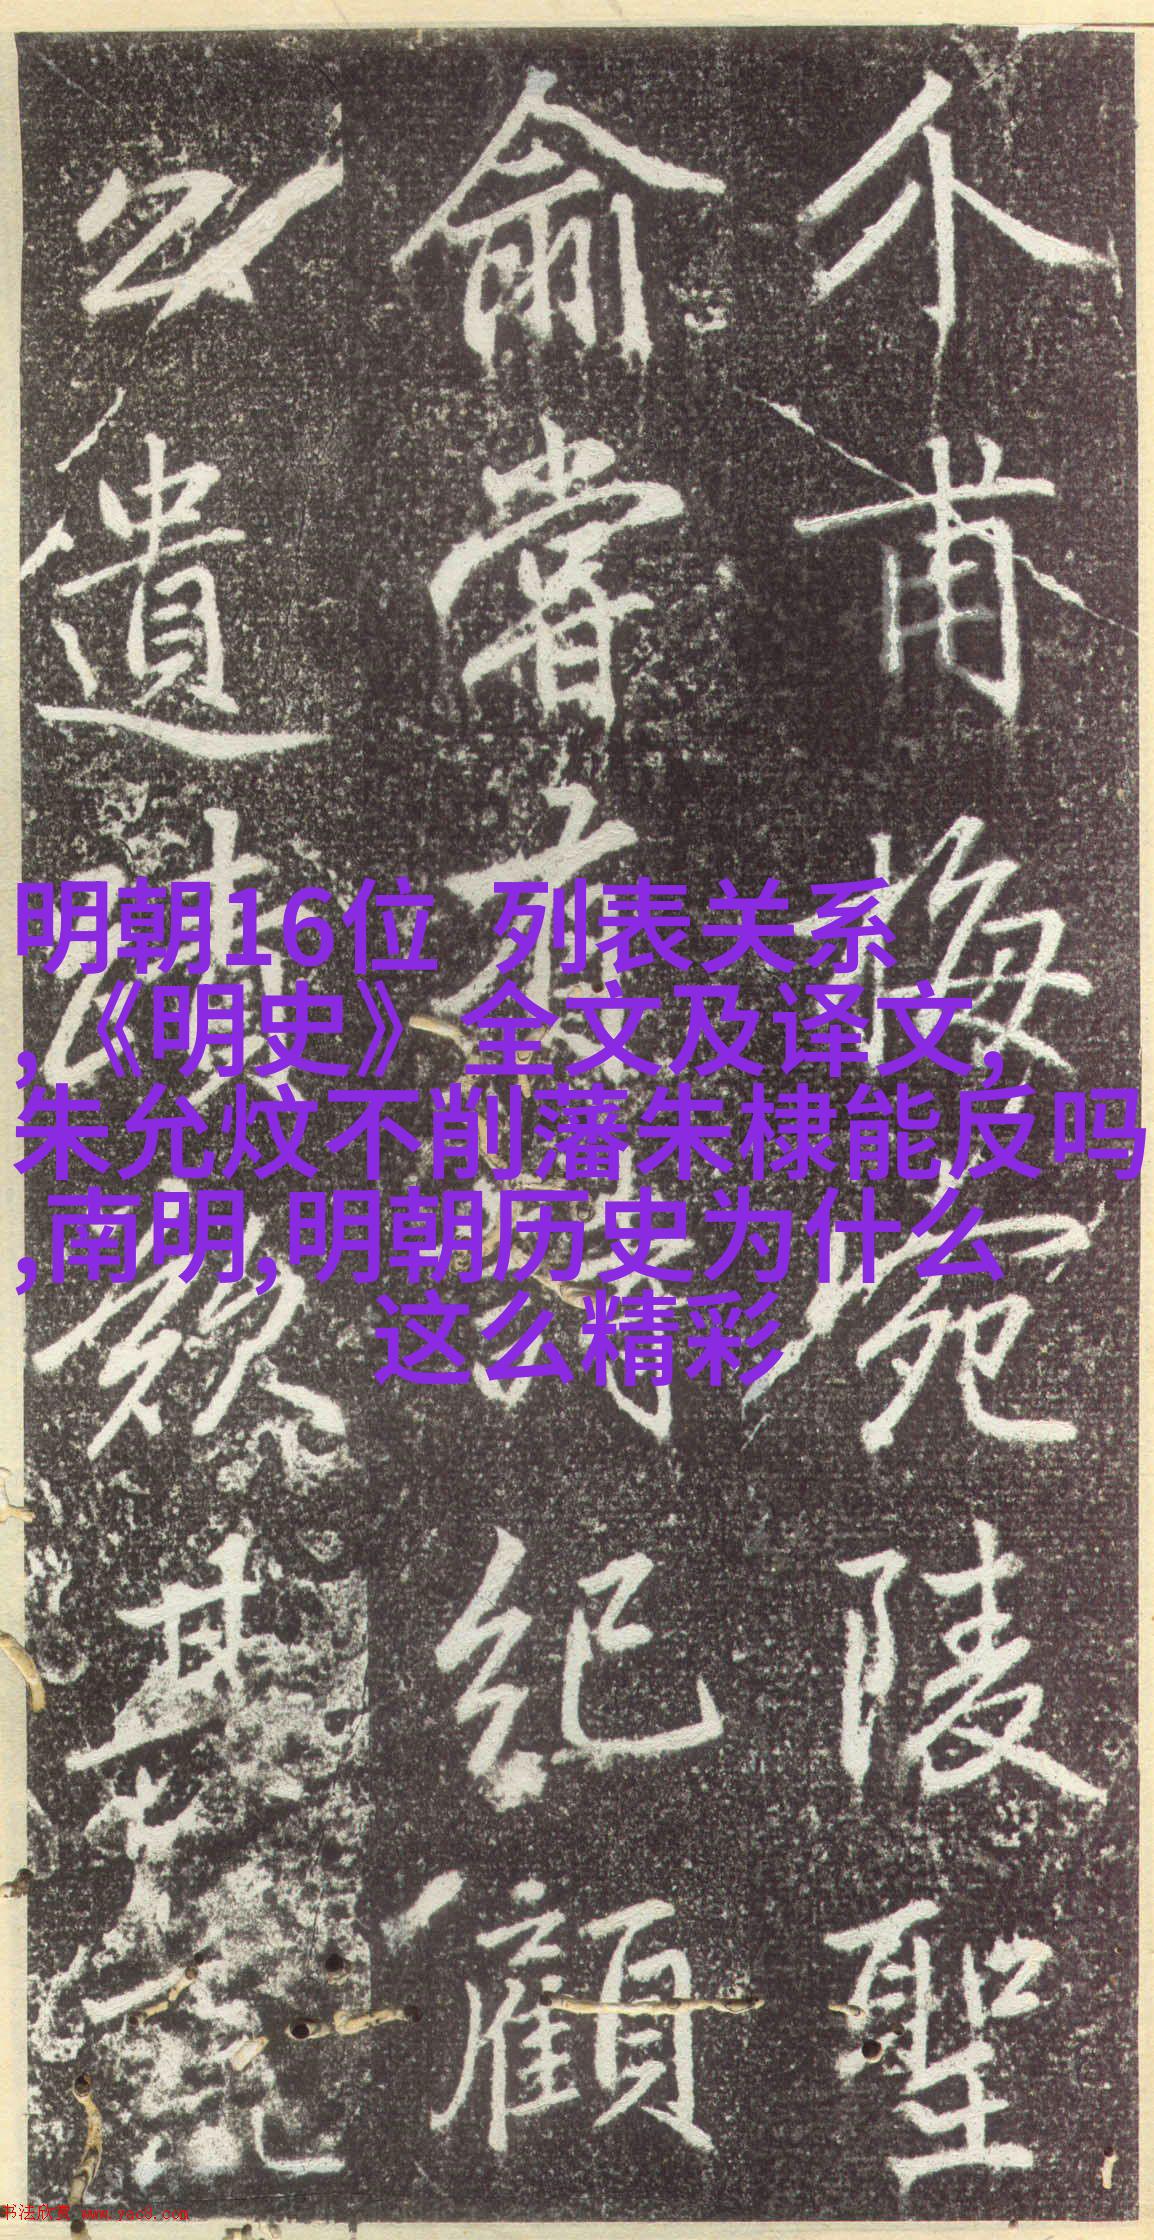 介甫梅宛陵聖
俞嘗有詩紀顧
公遺欽其
明朝16位 列表关系
,《明史》全文及译文,
朱允炆不削藩朱棣能反吗
,南明,明朝历史为什么
这么精彩
书法欣赏 www.yac8.com